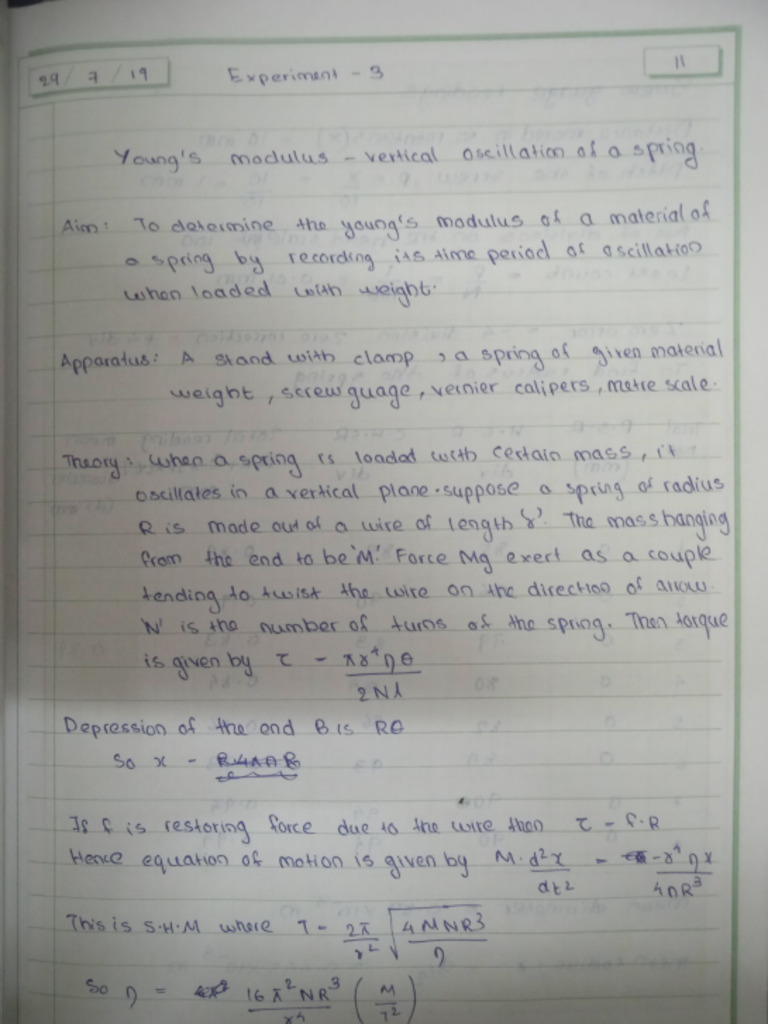 29/7/19
Experiment - 3
11
Young's modulus - vertical oscillation of a spring.
Aim: To determine the young's modulus of a material of
a spring by recording its time period of oscillation
when loaded with weight.
Apparatus: A stand with clamp, a spring of given material
weight, screw guage, vernier calipers, metre scale.
Theory: When a spring is loaded with certain mass, it
oscillates in a vertical plane. suppose a spring of radius
R is made out of a wire of length 'r'. The mass hanging
from the end to be 'M'. Force Mg exert as a couple
tending to twist the wire on the direction of arrow.
'N' is the number of turns of the spring. Then torque
is given by τ - πr⁴ηθ / 2Nl
Depression of the end B is Rθ
So x -
If f is restoring force due to the wire then τ - f·R
Hence equation of motion is given by M·d²x/dt² = -r⁴ηx / 4nR³
This is S.H.M where T - 2π/r² √(4MNR³/η)
So η = 16π²NR³/r⁴ (M/T²)